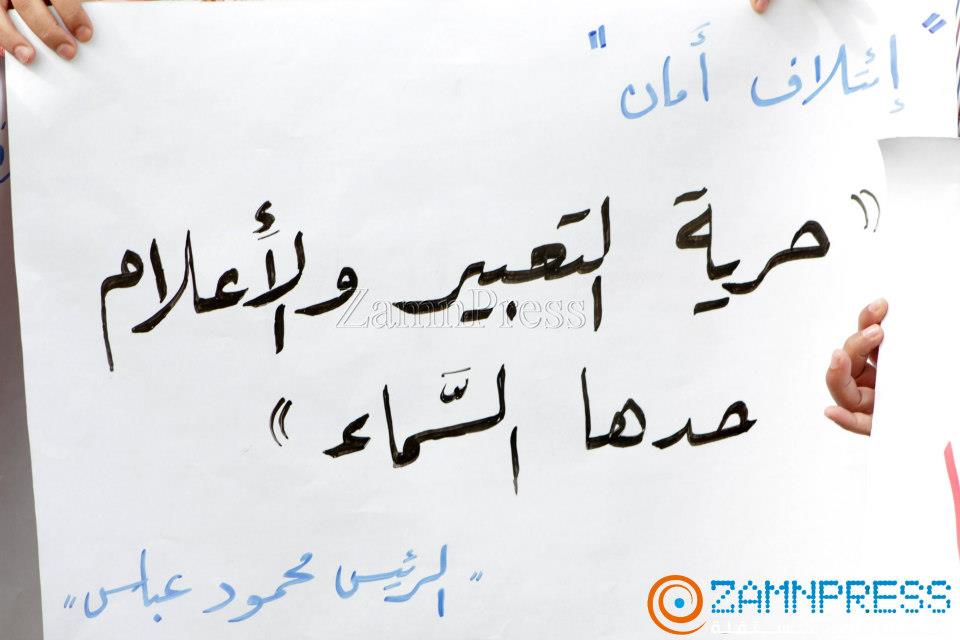 "إئتلاف أمان"
"حرية التعبير والأعلام
حدها السَّماء"
"الرئيس محمود عباس"
ZamnPress
ZAMNPRESS